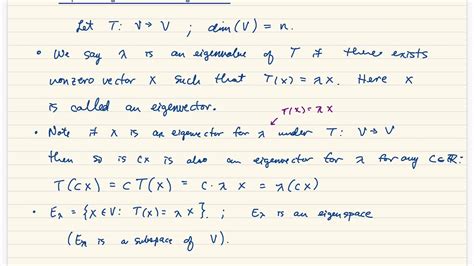 Let T: V → V ; dim(V) = n.
• We say λ is an eigenvalue of T if there exists
nonzero vector x such that T(x) = λx. Here x
is called an eigenvector.
T(x) = λx
• Note if x is an eigenvector for λ under T: V → V
then so is cx is also an eigenvector for λ for any c∈ℝ:
T(cx) = cT(x) = c·λx = λ(cx)
• Eλ = {x ∈ V: T(x) = λx}. ; Eλ is an eigenspace
(Eλ is a subspace of V).